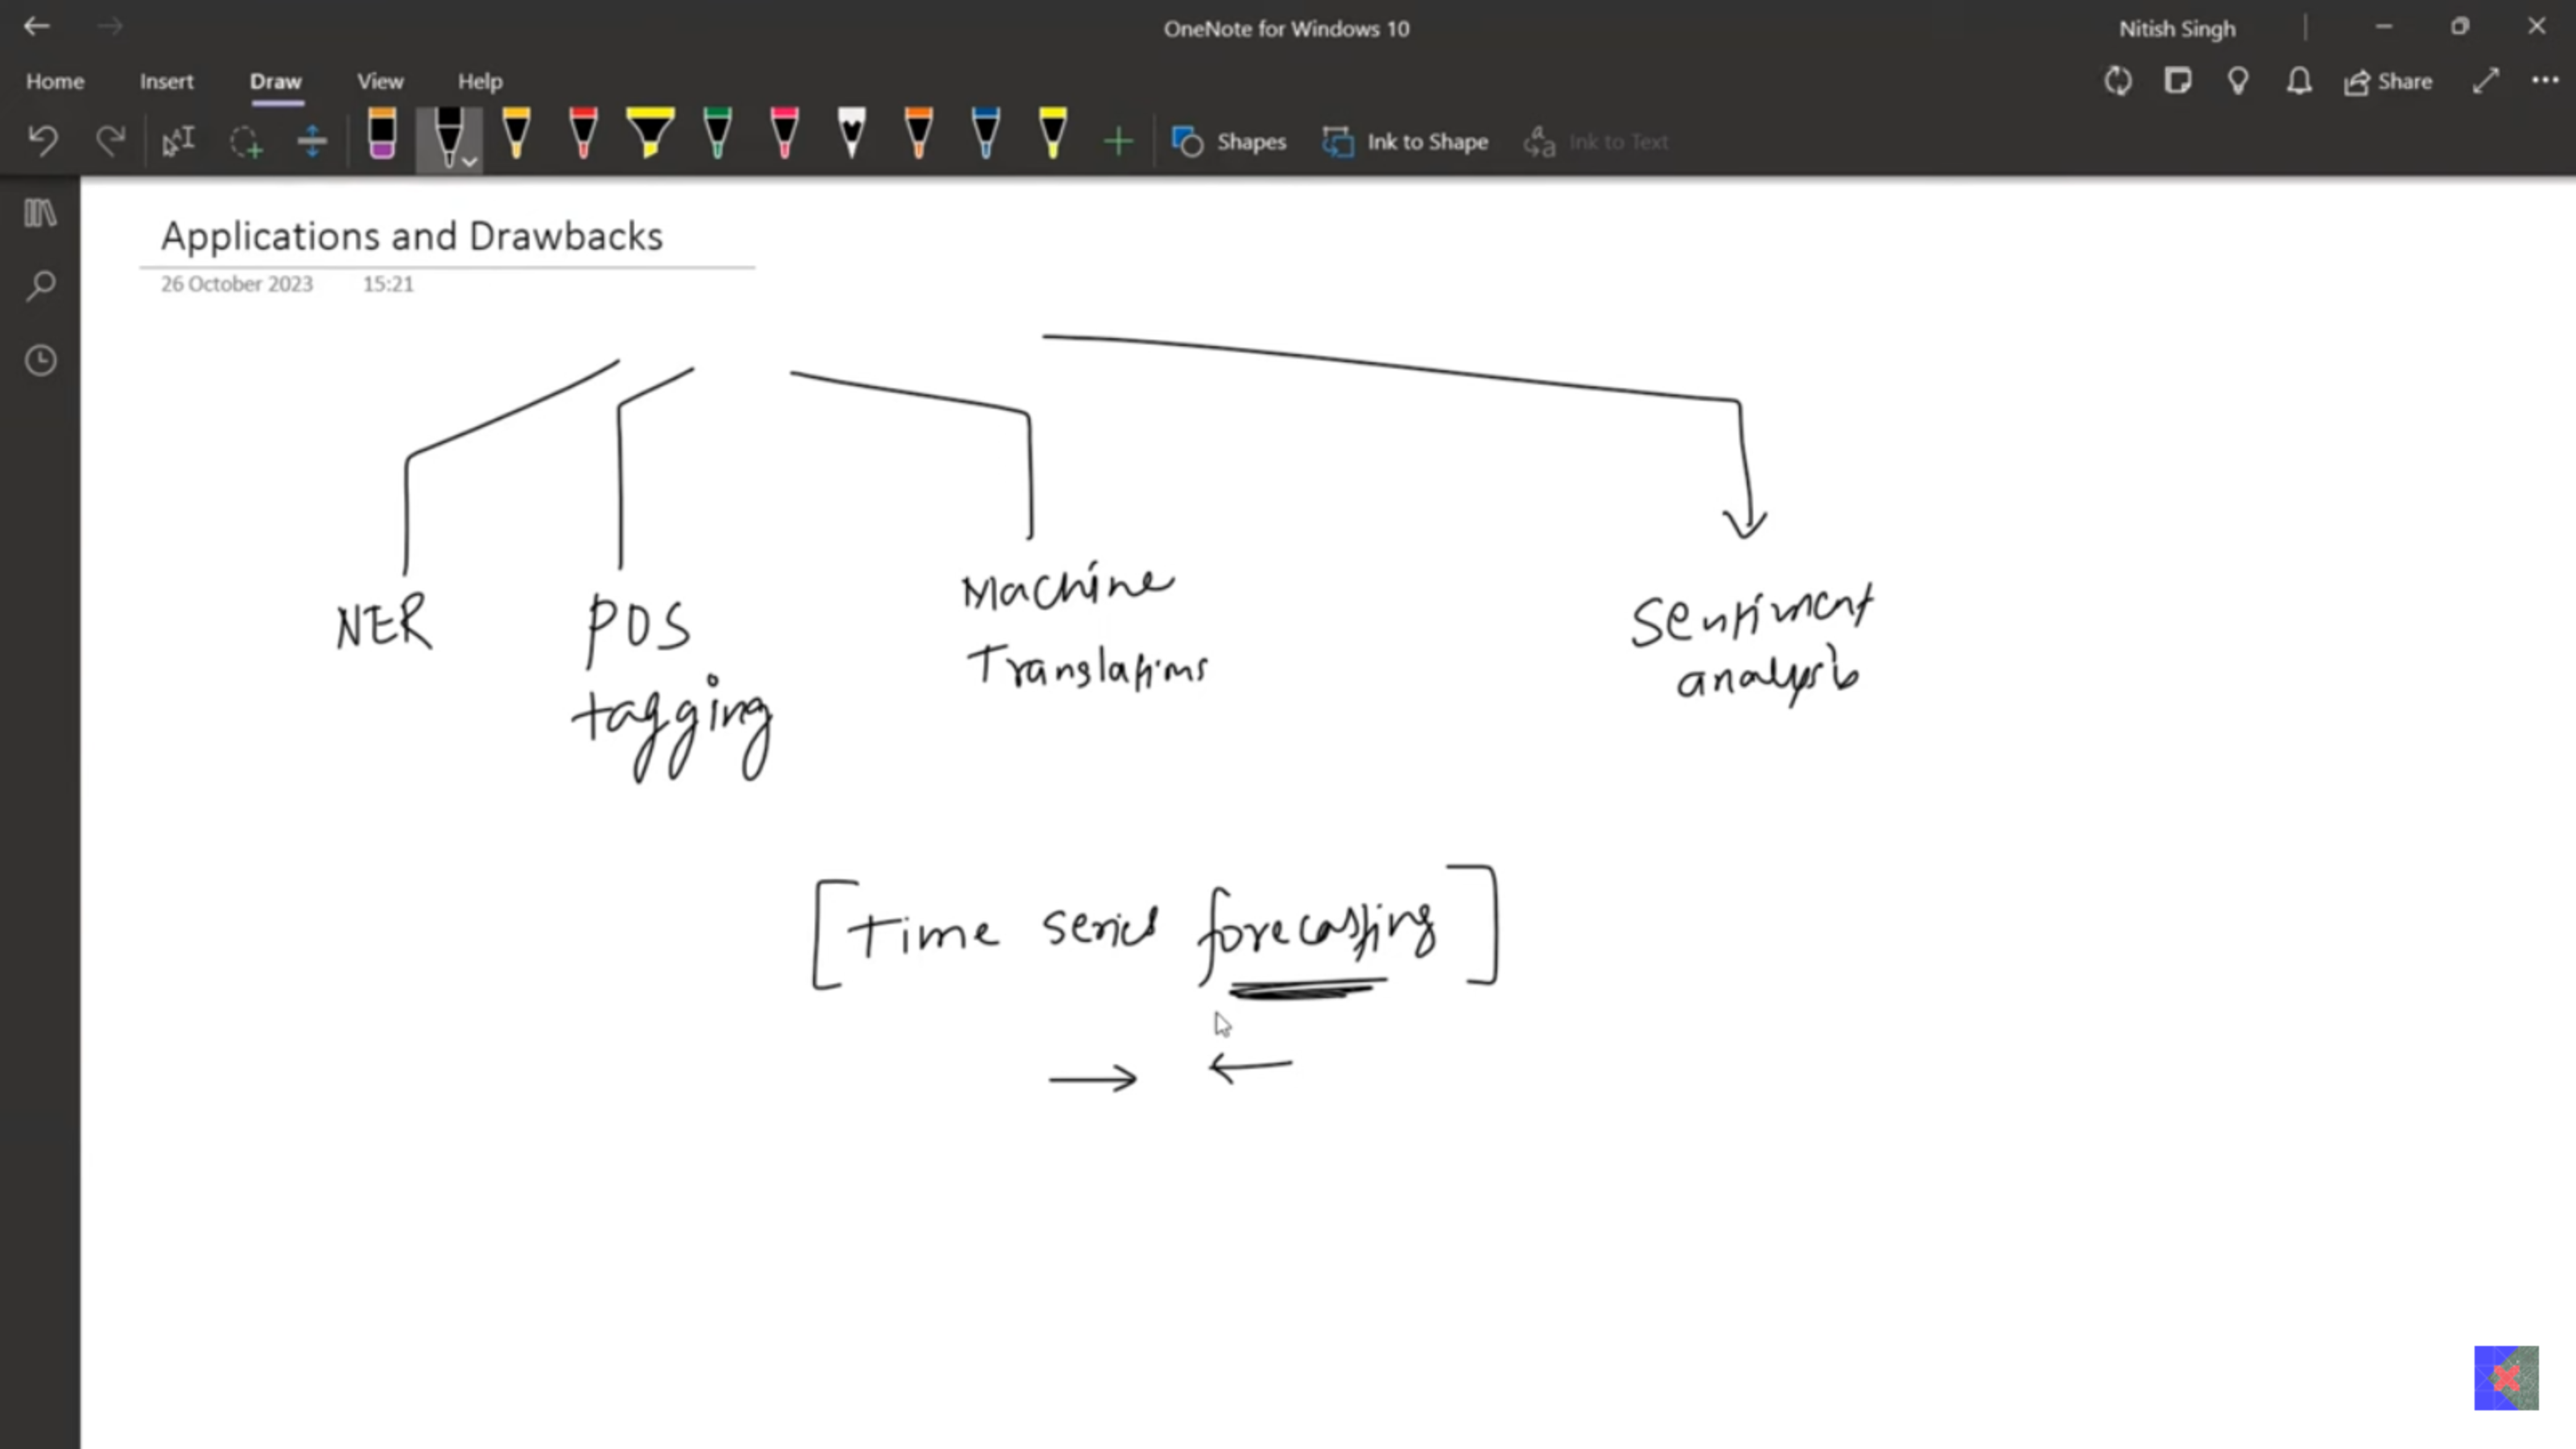 OneNote for Windows 10
Nitish Singh
Home Insert Draw View Help
Share
Shapes Ink to Shape Ink to Text
Applications and Drawbacks
26 October 2023 15:21
NER
POS
tagging
Machine
Translations
Sentiment
analysis
[Time series forecasting]